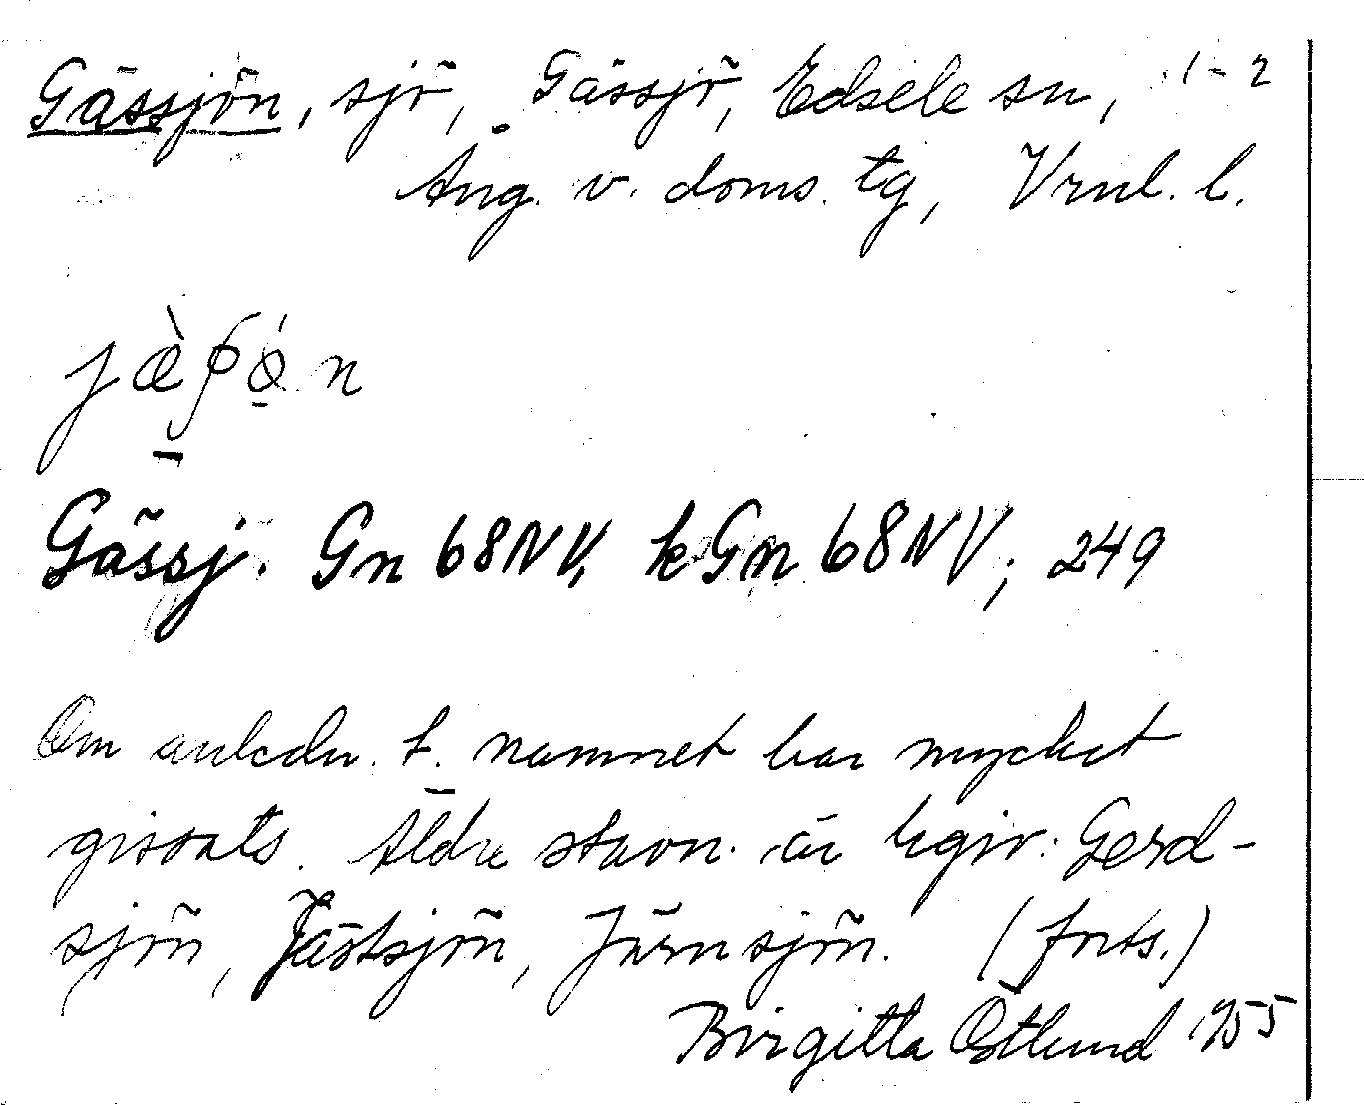 Gässjön, sjö, Gässjö, Edsele sn, 1-2
Ång. v. doms. tg, Vrnl. l.
Gässj. Gn 68NV, k Gn 68NV; 249
Om anledn. t. namnet har mycket
gissats. Äldre stavn. är
sjön, Jästsjön, Järnsjön. (forts.)
Birgitta Östlund 1955